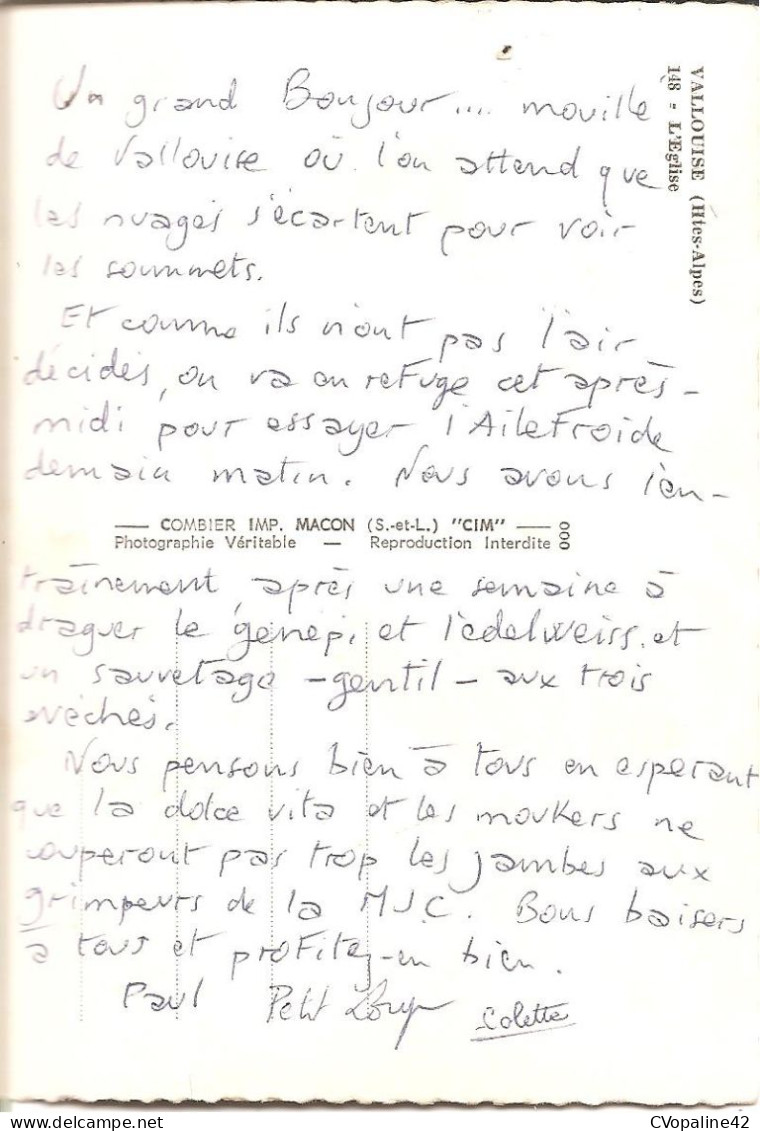 Un grand Bonjour.... mouillé
de Vallouise où l'on attend que
les nuages s'écartent pour voir
les sommets.
Et comme ils n'ont pas l'air
décidés, on va en refuge cet après-
midi pour essayer l'Ailefroide
demain matin. Nous avons l'en-
— COMBIER IMP. MACON (S.-et-L.) "CIM" —
Photographie Véritable — Reproduction Interdite
000
traînement, après une semaine à
draguer le génépi, et l'edelweiss. et
un sauvetage - gentil - aux trois
évêchés.
Nous pensons bien à tous en esperant
que la dolce vita et les moukers ne
couperont pas trop les jambes aux
grimpeurs de la MJC. Bons baisers
à tous et profitez-en bien.
Paul Petit Loup Colette
VALLOUISE (Htes-Alpes)
148 - L'Eglise
CVopaline42